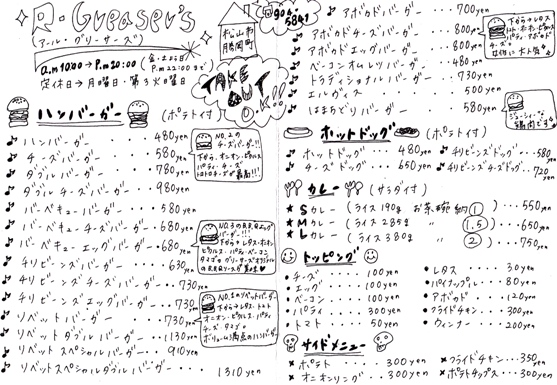 R・Greaser's
(アール・グリーサーズ)
松山市
勝岡町
904-5841
a.m 10:00 → P.m 20:00 (金・土・日 P.m 22:00まで)
定休日→月曜日・第3火曜日
TAKE OUT O.K!!
ハンバーガー (ポテト付)
ハンバーガー 480yen
チーズバーガー 580yen
ダブルバーガー 780yen
ダブルチーズバーガー 980yen
バーベキューバーガー 580yen
バーベキューチーズバーガー 680yen
バーベキューエッグバーガー 680yen
チリビーンズバーガー 630yen
チリビーンズチーズバーガー 730yen
チリビーンズエッグバーガー 730yen
リベットバーガー 730yen
リベットダブルバーガー 1130yen
リベットスペシャルバーガー 910yen
リベットスペシャルダブルバーガー 1310yen
NO.2の
チーズバーガー!!
下から、オニオン・ピクルス
パティ・チーズ
NO.3のB.B.Qエッグ
バーガー!!
NO.1のリベットバーガー
下からレタス・トマト
オニオン・ピクルス・パティ
チーズ
ボリューム満点のハンバーガー
アボカドバーガー 700yen
アボカドチーズバーガー 800yen
アボカドエッグバーガー 800yen
ベーコンオムレツバーガー 480yen
トラディショナルバーガー 730yen
エルヴィス 500yen
はまちどりバーガー 580yen
下からレタス
トマト・オニオン・ピクルス
パティ・アボカド
チーズ
女性に大人気
ホットドッグ (ポテト付)
ホットドッグ 480yen
チーズドッグ 650yen
チリビーンズドッグ 580yen
チリビーンズチーズドッグ 720yen
カレー (サラダ付)
★Sカレー (ライス190g お茶碗約①) 550yen
★Mカレー (ライス285g 〃 1.5) 650yen
★Lカレー (ライス380g 〃 ②) 750yen
トッピング
・チーズ 100yen
・エッグ 100yen
・ベーコン 100yen
・パティ 300yen
・トマト 50yen
・レタス 30yen
・パイナップル 80yen
・アボカド 120yen
・フライドチキン 300yen
・ウィンナー 200yen
サイドメニュー
×ポテト 300yen
×オニオンリング 300yen
×フライドチキン 350yen
×ポテトチップス 300yen